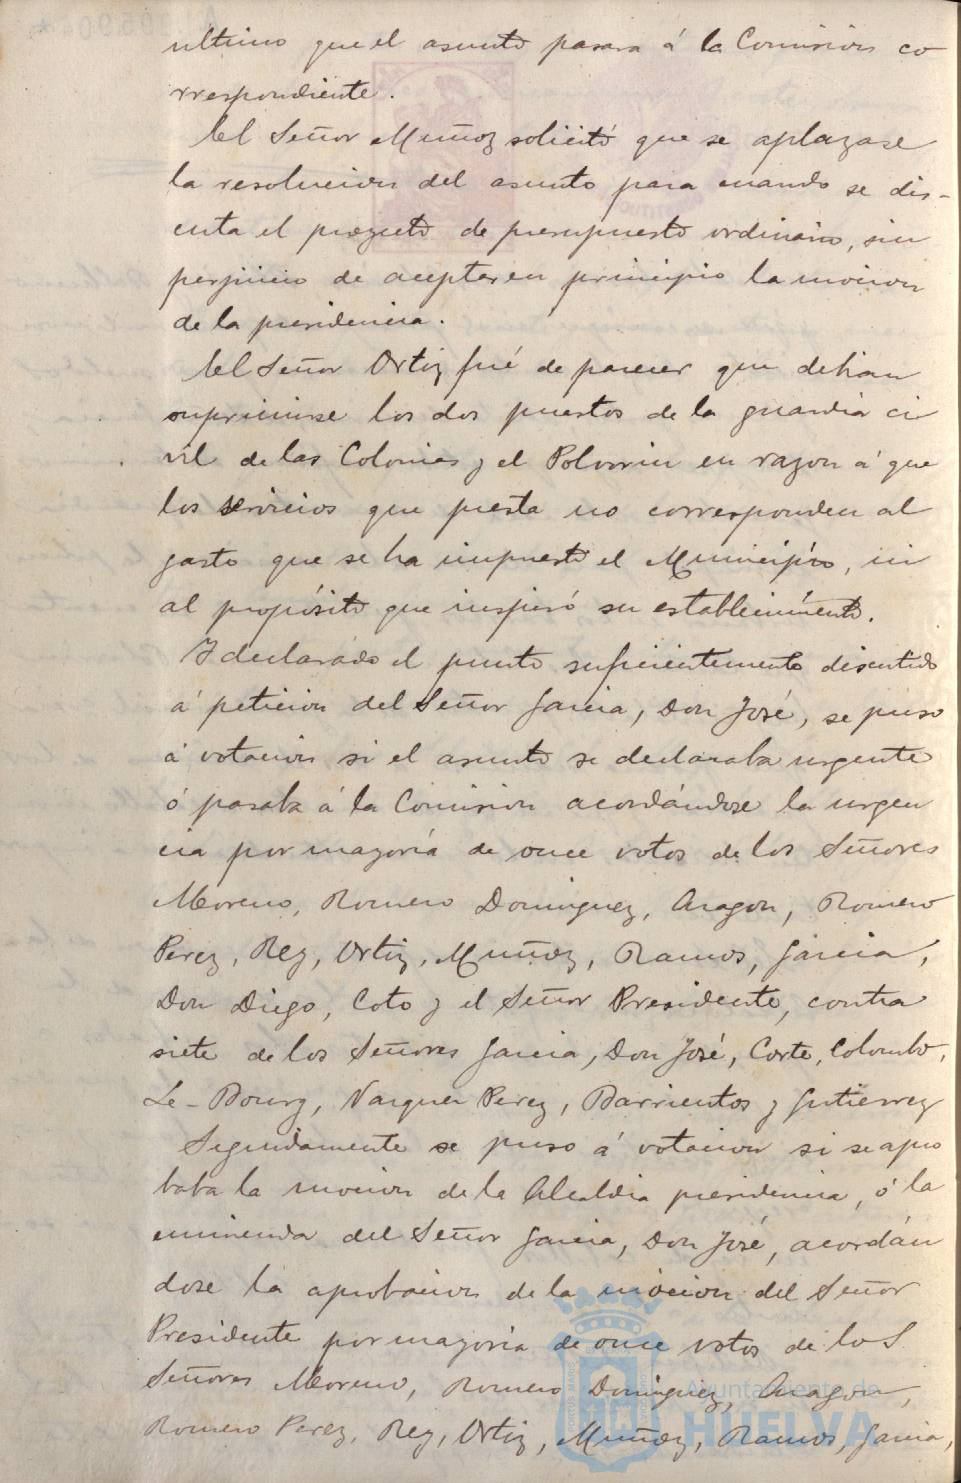 ultimo que el asunto pasara á la Comision co
rrespondiente.
El Señor Muñoz solicitó que se aplazase
la resolucion del asunto para cuando se dis-
cuta el proyecto de presupuesto ordinario, sin
perjuicio de aceptar en principio la mocion
de la presidencia.
El Señor Ortiz fué de parecer que debian
suprimirse los dos puestos de la guardia ci
vil de las Colonias y el Polvorin en razon á que
los servicios que presta no corresponden al
gasto que se ha impuesto el Municipio, ni
al propósito que inspiró su establecimiento.
Y declarado el punto suficientemente discutido
á peticion del Señor Garcia, Don José, se puso
á votacion si el asunto se declaraba urgente
ó pasaba á la Comision acordándose la urgen
cia por mayoría de once votos de los Señores
Moreno, Romero Dominguez, Aragon, Romero
Perez, Rey, Ortiz, Muñoz, Ramos, Garcia,
Don Diego, Coto y el Señor Presidente, contra
siete de los Señores Garcia, Don José, Corte, Colombo,
Le-Bourg, Vazquez Perez, Barrientos y Gutierrez
Seguidamente se puso á votacion si se apro
baba la mocion de la Alcaldia presidencia, ó la
enmienda del Señor Garcia, Don José, acordán
dose la aprobacion de la mocion del Señor
Presidente por mayoria de once votos de los
Señores Moreno, Romero Dominguez, Aragon,
Romero Perez, Rey, Ortiz, Muñoz, Ramos, Garcia,
Ayuntamiento de
HUELVA